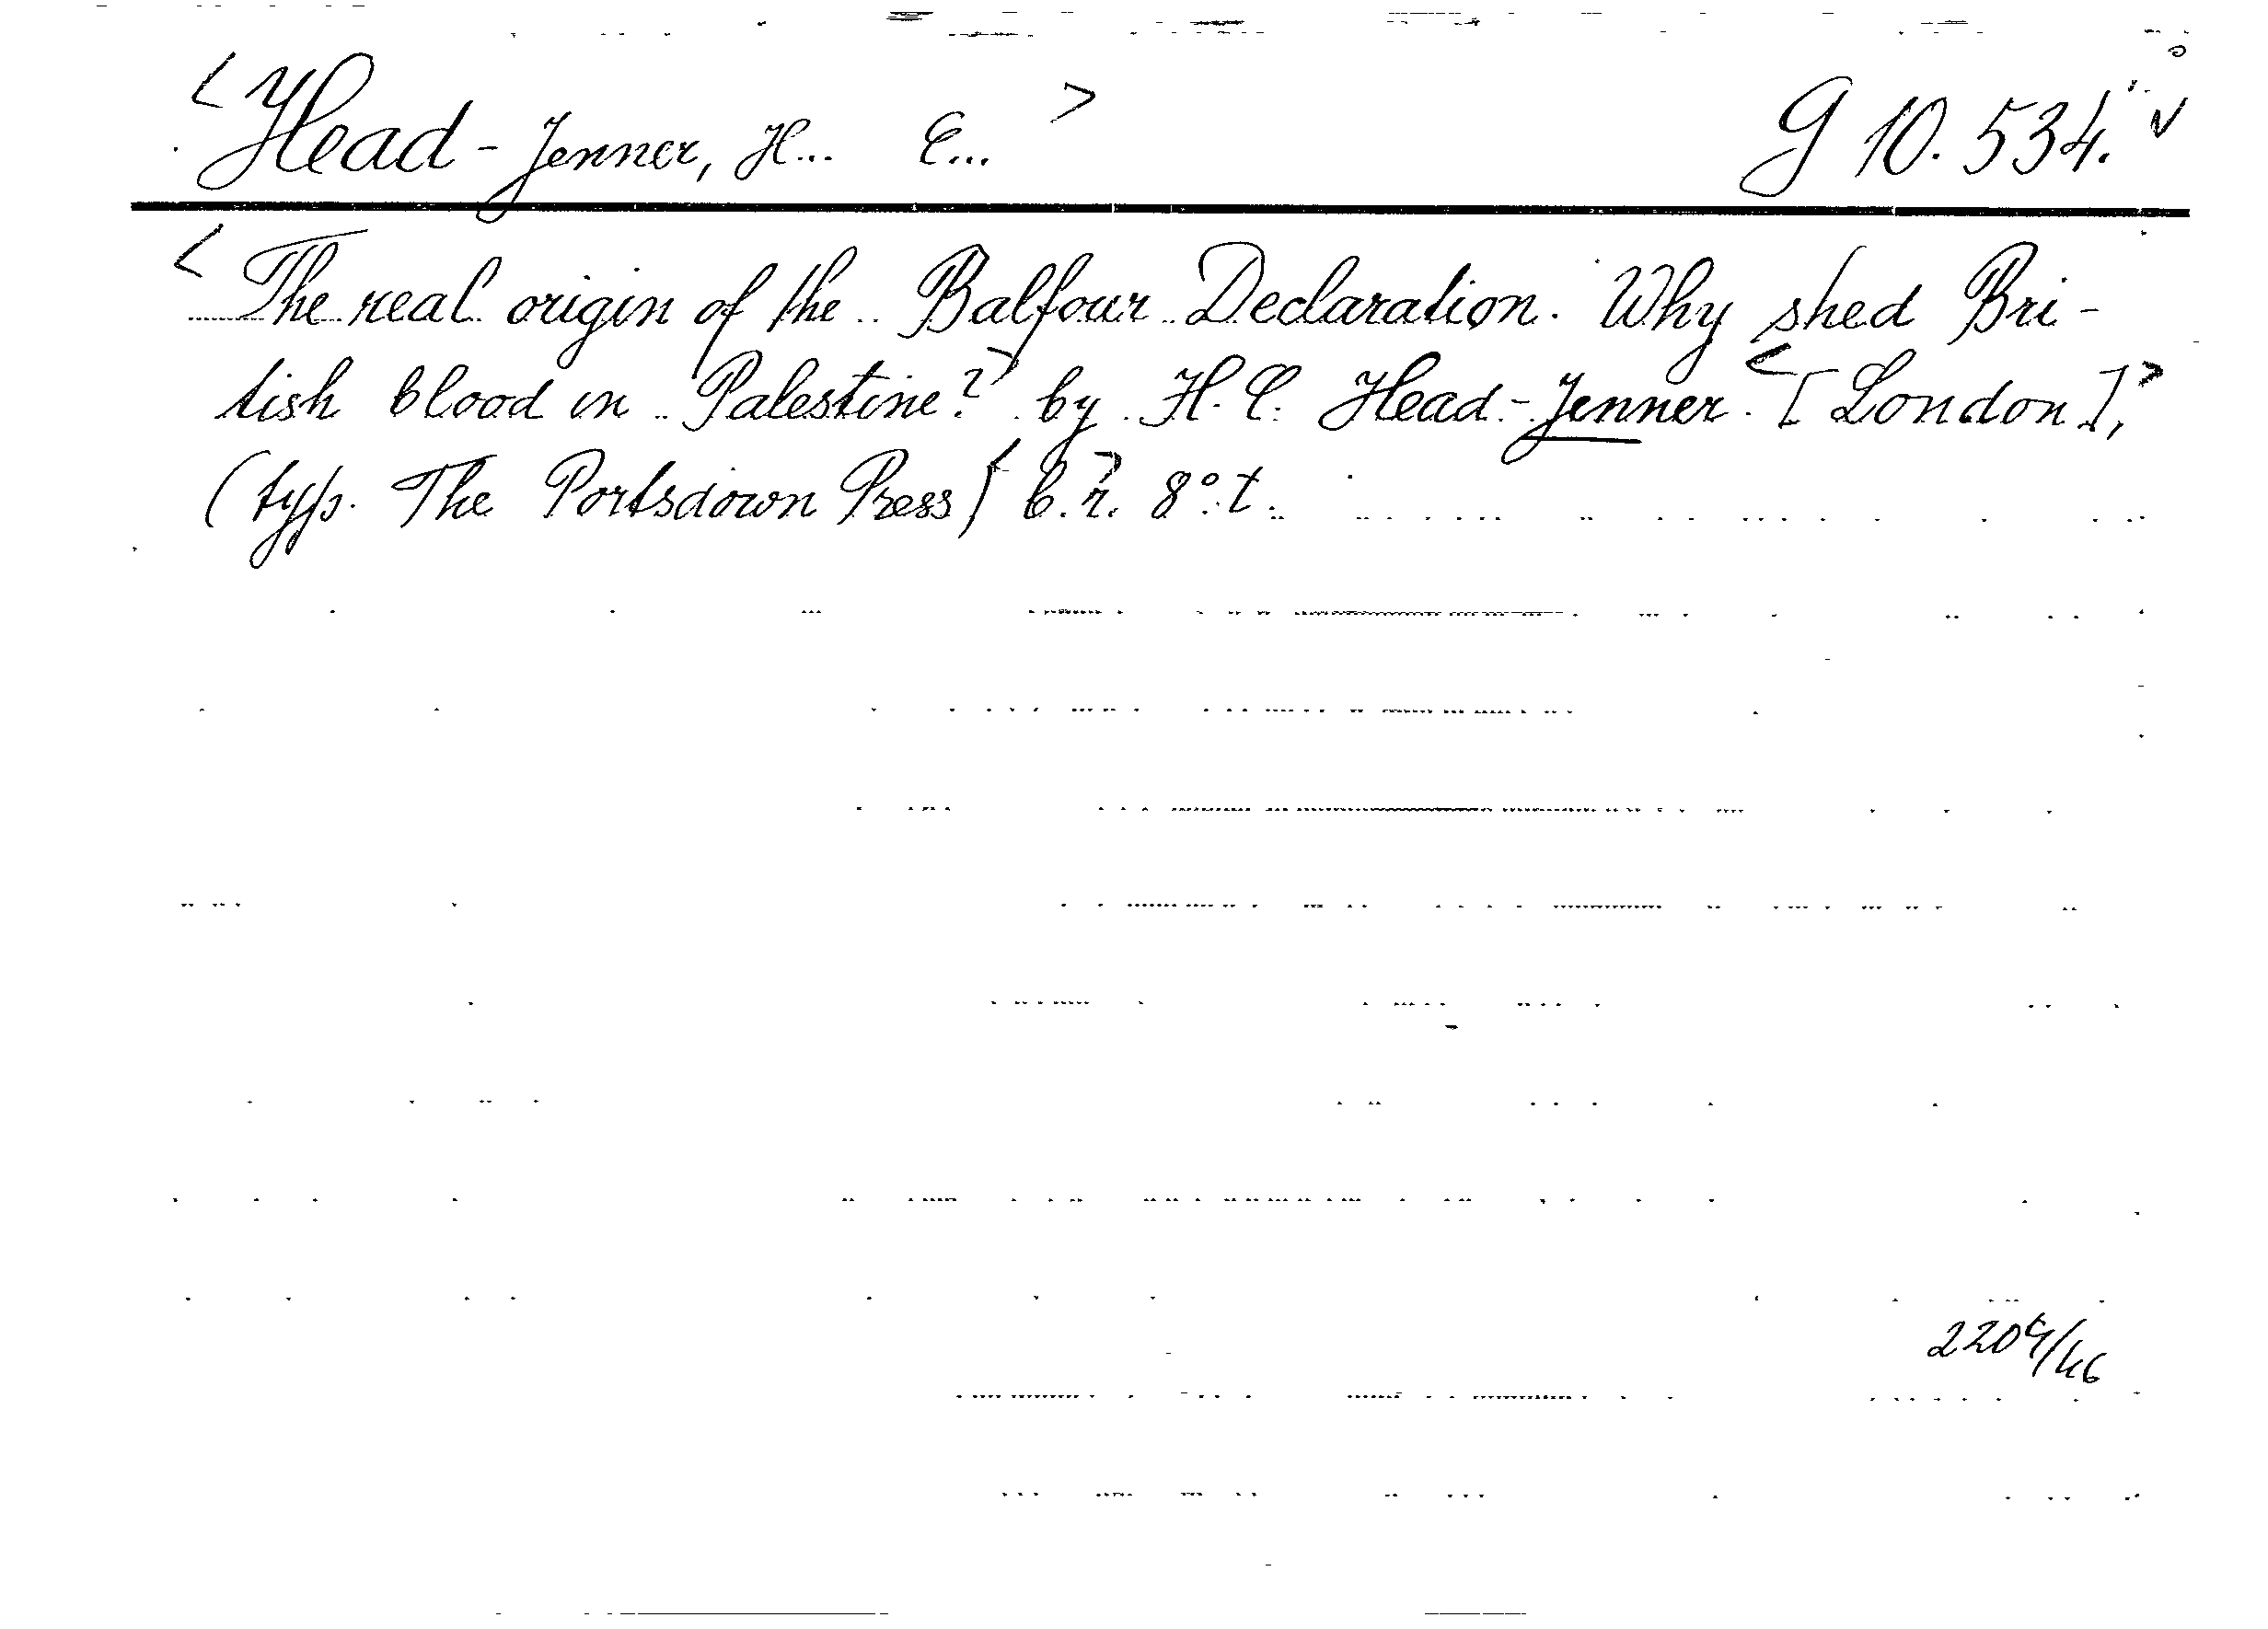 <Head-Jenner, H... E...> G 10.534.
<The real origin of the Balfour Declaration. Why shed Bri-
tish blood in Palestine?> by H. E. Head-Jenner. <[London],>
(typ. The Portsdown Press) <b. r.> 8° t.
2204/46